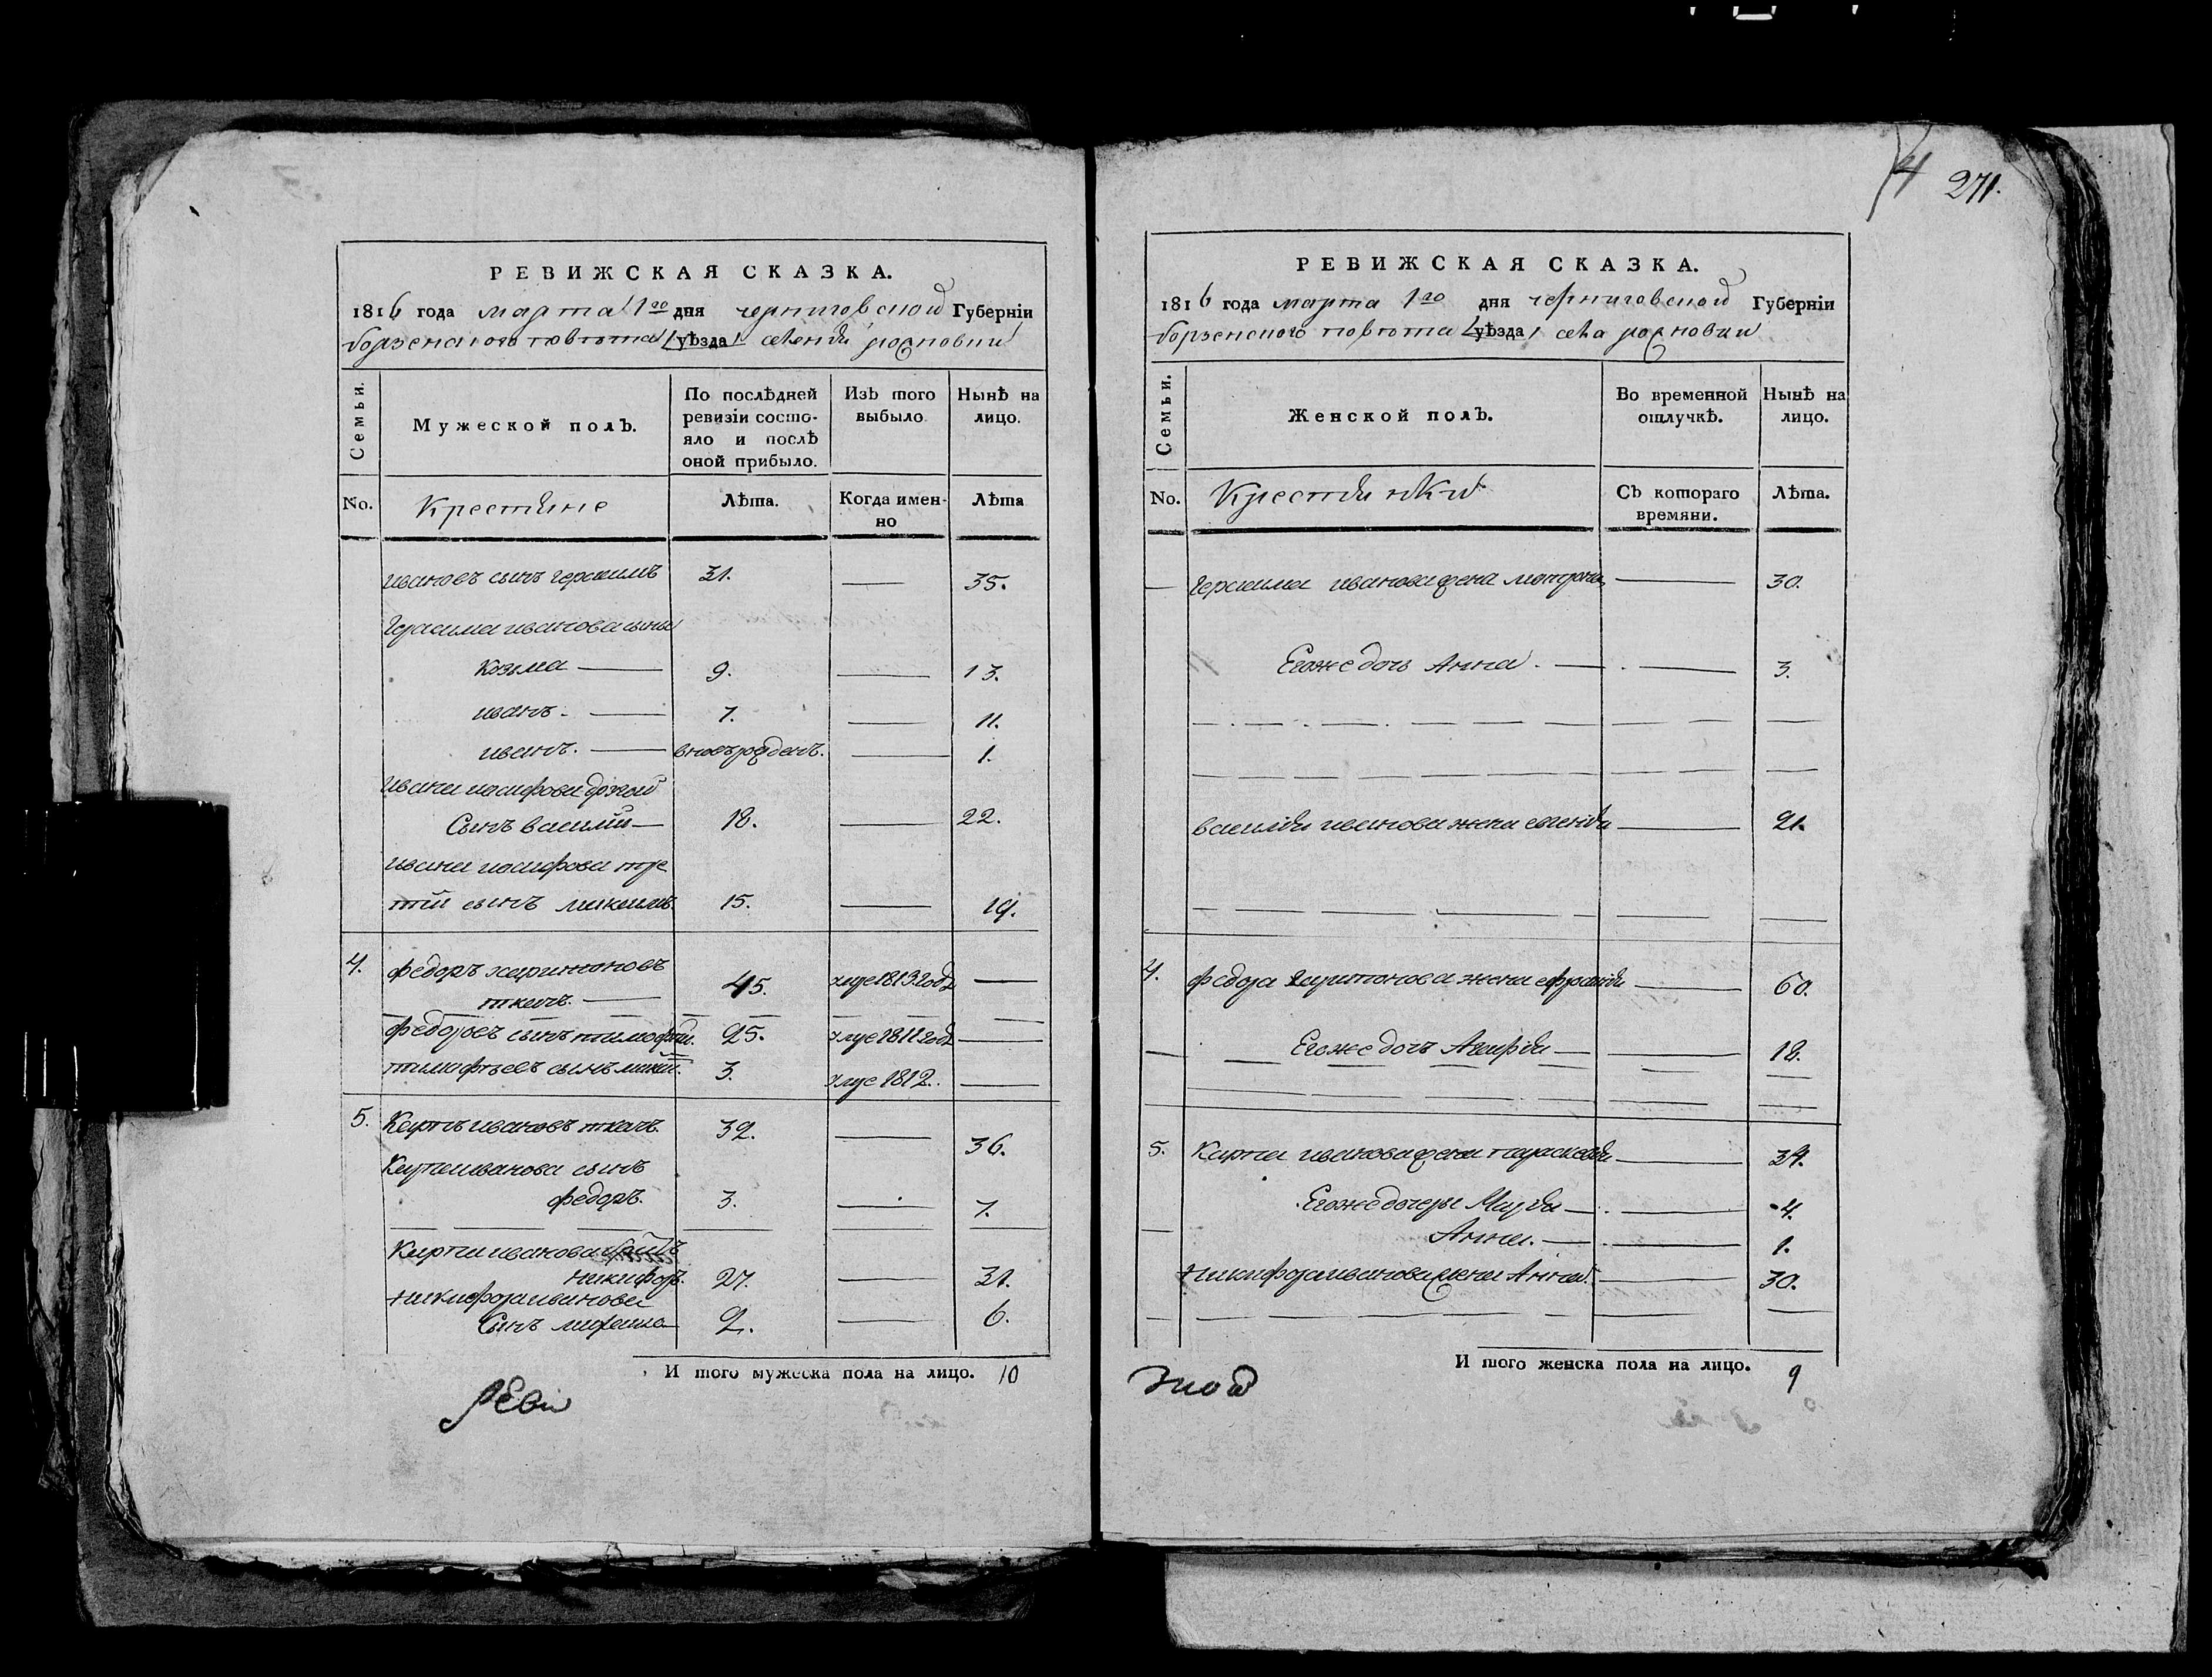 РЕВИЖСКАЯ СКАЗКА.
1816 года марта 1го дня черниговской Губерніи
борзенского повѣта уѣзда
Семьи.
Мужеской полЪ.
По послѣдней ревизіи состояло и послѣ оной прибыло.
ИзЪ того выбыло.
НынѢ на лицо.
No.
Крестяне
ЛѢта.
Когда именно
ЛѢта
ивановъ сынъ герасимъ 31. — 35.
Герасима иванова сыны
Козма — 9. — 13.
иванъ. — 7. — 11.
иванъ. — вновъ рожденъ. — 1.
ивана иосифова другой
Сынъ василий — 18. — 22.
ивана иосифова тре
тий сынъ максимъ. 15. — 19.
4. федоръ харитоновъ
ткачъ. — 45. умре 1813 года —
федоровъ сынъ тимофей. 25. умре 1811 года —
тимофѣевъ сынъ 3. умре 1812. —
5. Карпъ ивановъ ткачъ. 32. — 36.
Карпа иванова сынъ
федоръ. 3. — 7.
Карпа иванова братъ
никифоръ. 27. — 31.
никифора иванова
Сынъ 2. — 6.
И того мужеска пола на лицо. 10
Реви
271.
РЕВИЖСКАЯ СКАЗКА.
1816 года марта 1го дня черниговской Губерніи
борзенского повѣта уѣзда села
Семьи.
Женской полЪ.
Во временной отлучкѢ.
НынѢ на лицо.
No.
Крестянки
СЪ котораго времяни.
ЛѢта.
— Герасима иванова жена матрона — 30.
Егоже дочь Анна. — — 3.
василия иванова жена евгения — 21.
4. федора харитонова жена — 60.
— Егоже дочь Агафия — — 18.
5. Карпа иванова жена параскевия — 34.
Егоже дочеры Марья — — 4.
Анна. — — 1.
никифора иванова жена Анна. — 30.
И того женска пола на лицо. 9
зкой